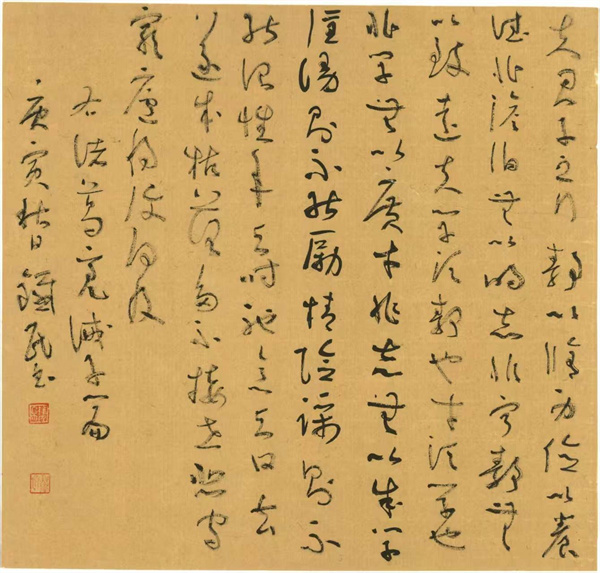 夫君子之行靜以脩身儉以養
德非澹泊無以明志非寧靜無
以致遠夫學須靜也才須學也
非學無以廣才非志無以成學
淫漫則不能勵情險躁則不
能治性年與時馳意與日去
遂成枯落多不接世悲守
窮廬將復何及
右諸葛亮誡子篇
庚寅秋日民書